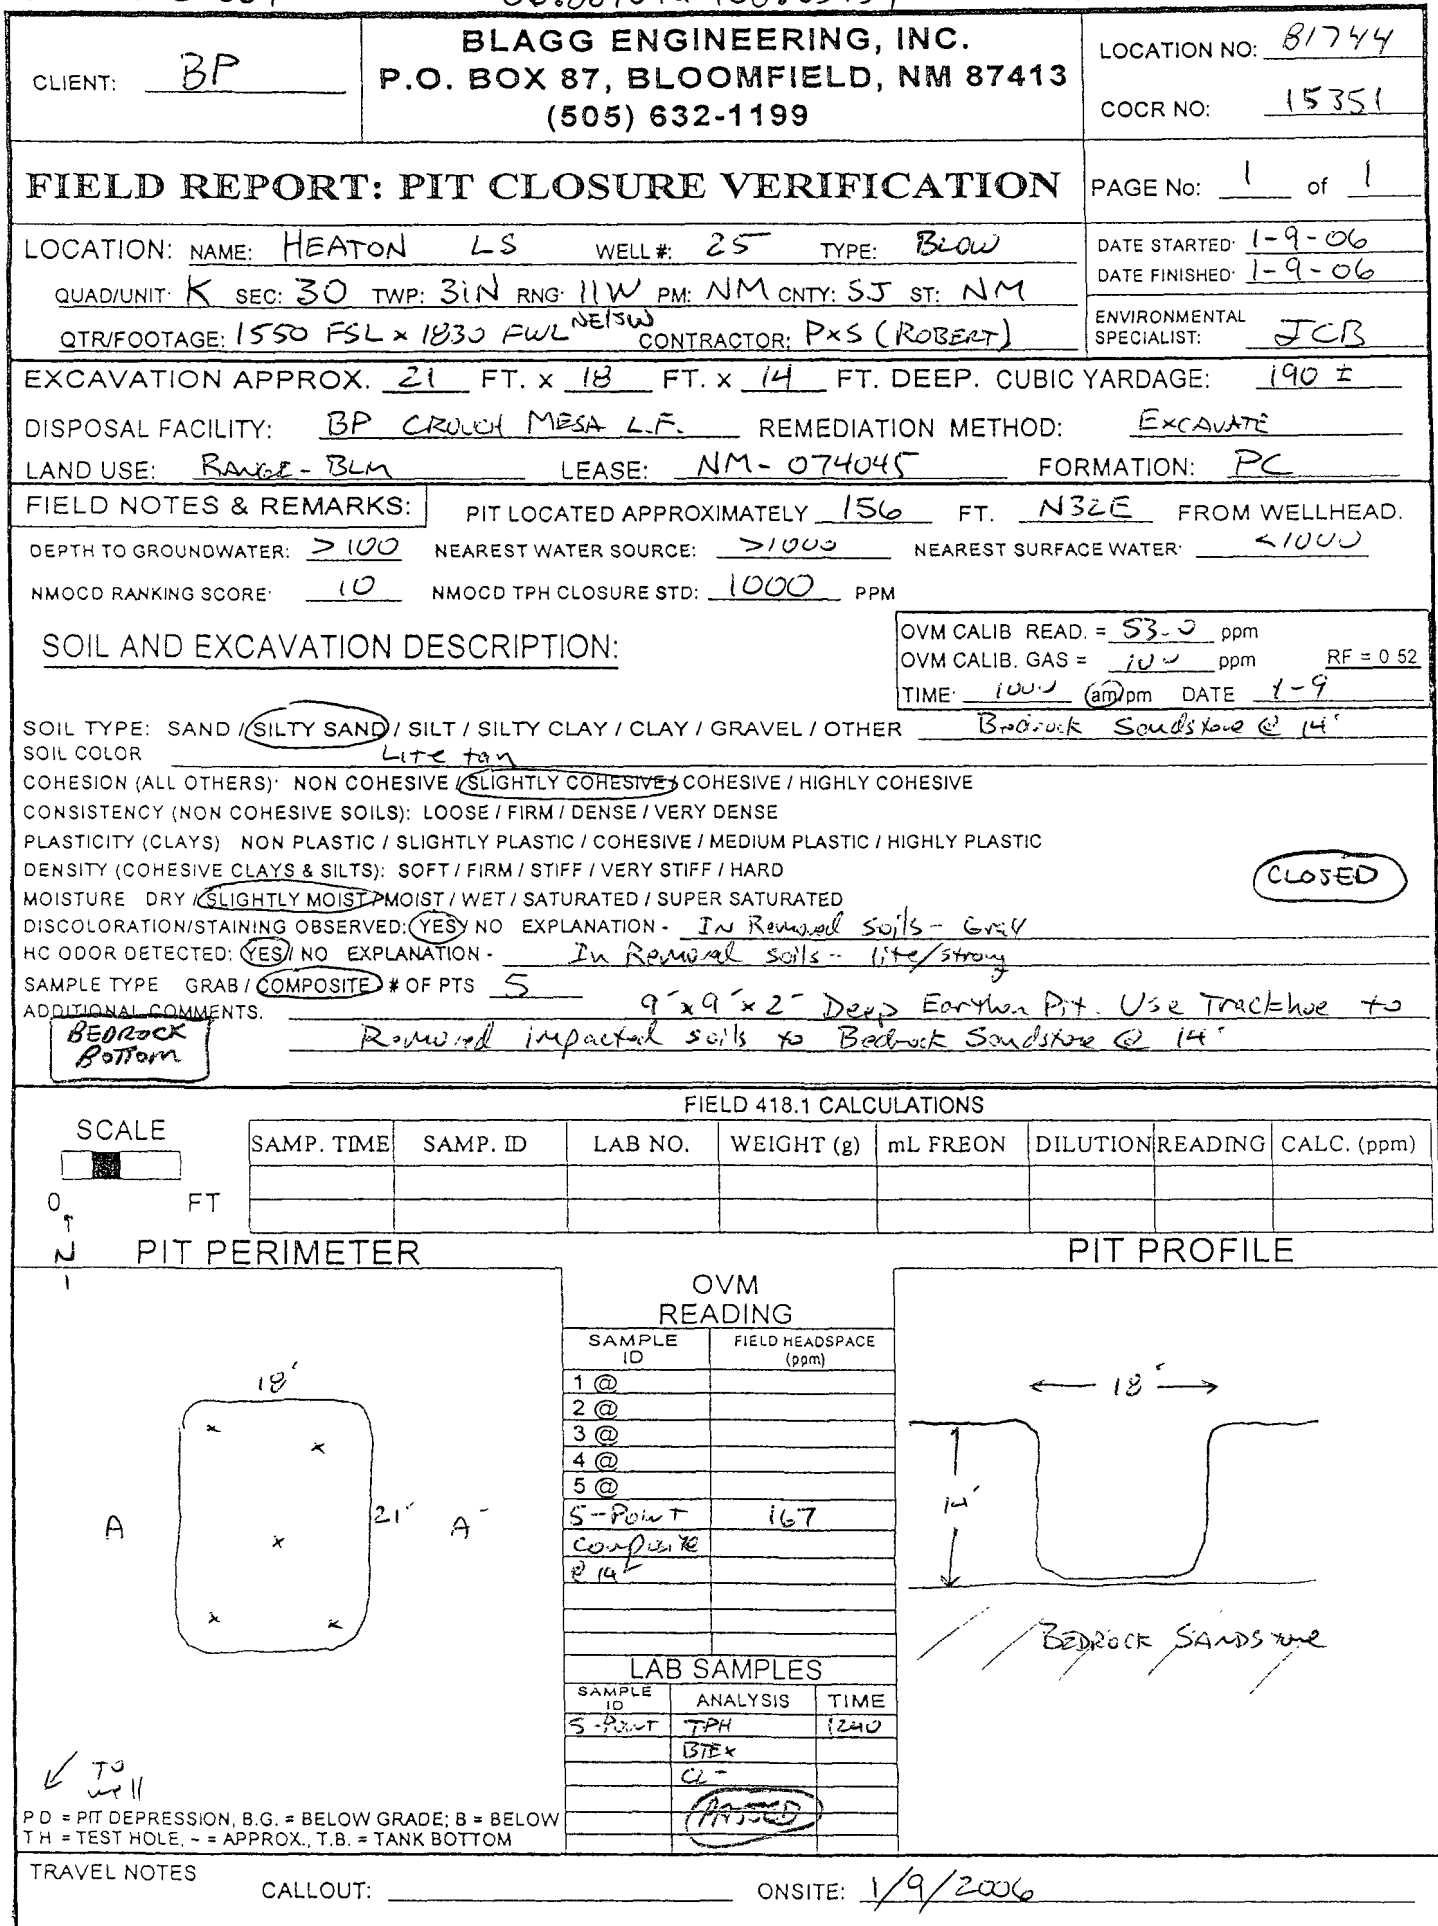 BLAGG ENGINEERING, INC.
P.O. BOX 87, BLOOMFIELD, NM 87413
(505) 632-1199
CLIENT: BP
LOCATION NO: 81744
COCR NO: 15351
FIELD REPORT: PIT CLOSURE VERIFICATION
PAGE No: 1 of 1
LOCATION: NAME: HEATON LS WELL #: 25 TYPE: BLOW
DATE STARTED: 1-9-06
DATE FINISHED: 1-9-06
QUAD/UNIT: K SEC: 30 TWP: 31N RNG: 11W PM: NM CNTY: SJ ST: NM
QTR/FOOTAGE: 1550 FSL x 1830 FWL NE/SW CONTRACTOR: P&S (ROBERT)
ENVIRONMENTAL SPECIALIST: JCB
EXCAVATION APPROX. 21 FT. x 18 FT. x 14 FT. DEEP. CUBIC YARDAGE: 190 ±
DISPOSAL FACILITY: BP CROUCH MESA L.F. REMEDIATION METHOD: EXCAVATE
LAND USE: RANGE - BLM LEASE: NM-074045 FORMATION: PC
FIELD NOTES & REMARKS: PIT LOCATED APPROXIMATELY 156 FT. N32E FROM WELLHEAD.
DEPTH TO GROUNDWATER: >100 NEAREST WATER SOURCE: >1000 NEAREST SURFACE WATER: <1000
NMOCD RANKING SCORE: 10 NMOCD TPH CLOSURE STD: 1000 PPM
SOIL AND EXCAVATION DESCRIPTION:
OVM CALIB READ. = 53.0 ppm
OVM CALIB. GAS = 100 ppm RF = 0 52
TIME: 1000 am/pm DATE 1-9
SOIL TYPE: SAND / SILTY SAND / SILT / SILTY CLAY / CLAY / GRAVEL / OTHER Bedrock Sandstone @ 14'
SOIL COLOR Lite tan
COHESION (ALL OTHERS): NON COHESIVE / SLIGHTLY COHESIVE / COHESIVE / HIGHLY COHESIVE
CONSISTENCY (NON COHESIVE SOILS): LOOSE / FIRM / DENSE / VERY DENSE
PLASTICITY (CLAYS) NON PLASTIC / SLIGHTLY PLASTIC / COHESIVE / MEDIUM PLASTIC / HIGHLY PLASTIC
DENSITY (COHESIVE CLAYS & SILTS): SOFT / FIRM / STIFF / VERY STIFF / HARD
CLOSED
MOISTURE DRY / SLIGHTLY MOIST / MOIST / WET / SATURATED / SUPER SATURATED
DISCOLORATION/STAINING OBSERVED: YES / NO EXPLANATION - In Removed soils - Gray
HC ODOR DETECTED: YES / NO EXPLANATION - In Removal soils - lite/strong
SAMPLE TYPE GRAB / COMPOSITE # OF PTS 5
ADDITIONAL COMMENTS. 9' x 9' x 2' Deep Earthen Pit. Use Trackhoe to
BEDROCK Bottom
Removed impacted soils to Bedrock Sandstone @ 14'
FIELD 418.1 CALCULATIONS
SCALE
0 FT
SAMP. TIME SAMP. ID LAB NO. WEIGHT (g) mL FREON DILUTION READING CALC. (ppm)
N
PIT PERIMETER
PIT PROFILE
OVM
READING
SAMPLE ID FIELD HEADSPACE (ppm)
1 @
2 @
3 @
4 @
5 @
5-Point 167
Composite
@ 14'
18'
21'
A A'
18'
14'
BEDROCK SANDSTONE
LAB SAMPLES
SAMPLE ID ANALYSIS TIME
5-Point TPH 1240
BTEX
CL-
PASSED
To well
P D = PIT DEPRESSION, B.G. = BELOW GRADE; B = BELOW
T H = TEST HOLE, ~ = APPROX., T.B. = TANK BOTTOM
TRAVEL NOTES
CALLOUT: ONSITE: 1/9/2006